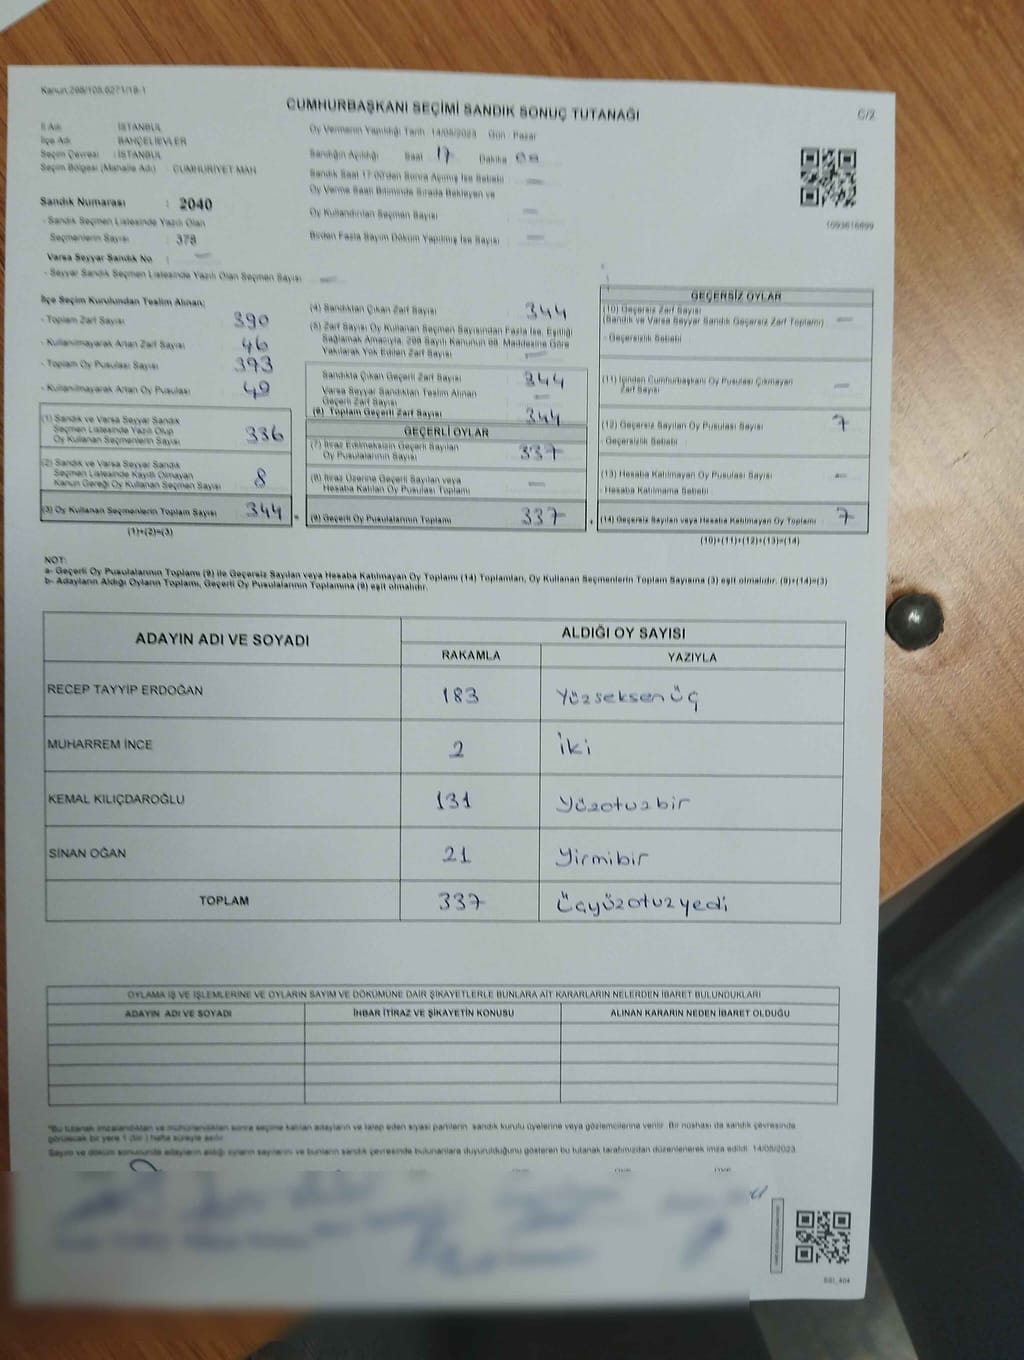 Kanun:298/105,6271/19-1
CUMHURBAŞKANI SEÇİMİ SANDIK SONUÇ TUTANAĞI
C/2
İl Adı : İSTANBUL
İlçe Adı : BAHÇELİEVLER
Seçim Çevresi : İSTANBUL
Seçim Bölgesi (Mahalle Adı) : CUMHURİYET MAH
Sandık Numarası : 2040
- Sandık Seçmen Listesinde Yazılı Olan
Seçmenlerin Sayısı : 378
Varsa Seyyar Sandık No : —
- Seyyar Sandık Seçmen Listesinde Yazılı Olan Seçmen Sayısı : —
Oy Vermenin Yapıldığı Tarih : 14/05/2023 Gün : Pazar
Sandığın Açıldığı Saat 17 Dakika 00
Sandık Saat 17:00'den Sonra Açılmış İse Sebebi : —
Oy Verme Saati Bitiminde Sırada Bekleyen ve
Oy Kullandırılan Seçmen Sayısı : —
Birden Fazla Sayım Döküm Yapılmış İse Sayısı : —
İlçe Seçim Kurulundan Teslim Alınan;
- Toplam Zarf Sayısı 390
- Kullanılmayarak Artan Zarf Sayısı 46
- Toplam Oy Pusulası Sayısı 393
- Kullanılmayarak Artan Oy Pusulası 49
(1) Sandık ve Varsa Seyyar Sandık
Seçmen Listesinde Yazılı Olup
Oy Kullanan Seçmenlerin Sayısı 336
(2) Sandık ve Varsa Seyyar Sandık
Seçmen Listesinde Kayıtlı Olmayan
Kanun Gereği Oy Kullanan Seçmen Sayısı 8
(3) Oy Kullanan Seçmenlerin Toplam Sayısı 344 =
(1)+(2)=(3)
(4) Sandıktan Çıkan Zarf Sayısı 344
(5) Zarf Sayısı Oy Kullanan Seçmen Sayısından Fazla İse, Eşitliği
Sağlamak Amacıyla, 298 Sayılı Kanunun 98. Maddesine Göre
Yakılarak Yok Edilen Zarf Sayısı —
Sandıkta Çıkan Geçerli Zarf Sayısı 344
Varsa Seyyar Sandıktan Teslim Alınan
Geçerli Zarf Sayısı —
(6) Toplam Geçerli Zarf Sayısı 344
GEÇERLİ OYLAR
(7) İtiraz Edilmeksizin Geçerli Sayılan
Oy Pusulalarının Sayısı 337
(8) İtiraz Üzerine Geçerli Sayılan veya
Hesaba Katılan Oy Pusulası Toplamı —
(9) Geçerli Oy Pusulalarının Toplamı 337 +
GEÇERSİZ OYLAR
(10) Geçersiz Zarf Sayısı —
(Sandık ve Varsa Seyyar Sandık Geçersiz Zarf Toplamı)
- Geçersizlik Sebebi :
(11) İçinden Cumhurbaşkanı Oy Pusulası Çıkmayan
Zarf Sayısı —
(12) Geçersiz Sayılan Oy Pusulası Sayısı 7
- Geçersizlik Sebebi :
(13) Hesaba Katılmayan Oy Pusulası Sayısı —
- Hesaba Katılmama Sebebi :
(14) Geçersiz Sayılan veya Hesaba Katılmayan Oy Toplamı 7
(10)+(11)+(12)+(13)=(14)
NOT:
a- Geçerli Oy Pusulalarının Toplamı (9) ile Geçersiz Sayılan veya Hesaba Katılmayan Oy Toplamı (14) Toplamları, Oy Kullanan Seçmenlerin Toplam Sayısına (3) eşit olmalıdır. (9)+(14)=(3)
b- Adayların Aldığı Oyların Toplamı, Geçerli Oy Pusulalarının Toplamına (9) eşit olmalıdır.
ADAYIN ADI VE SOYADI ALDIĞI OY SAYISI
RAKAMLA YAZIYLA
RECEP TAYYİP ERDOĞAN 183 Yüzseksenüç
MUHARREM İNCE 2 İki
KEMAL KILIÇDAROĞLU 131 Yüzotuzbir
SİNAN OĞAN 21 Yirmibir
TOPLAM 337 Üçyüzotuzyedi
OYLAMA İŞ VE İŞLEMLERİNE VE OYLARIN SAYIM VE DÖKÜMÜNE DAİR ŞİKAYETLERLE BUNLARA AİT KARARLARIN NELERDEN İBARET BULUNDUKLARI
ADAYIN ADI VE SOYADI İHBAR İTİRAZ VE ŞİKAYETİN KONUSU ALINAN KARARIN NEDEN İBARET OLDUĞU
"Bu tutanak imzalandıktan ve mühürlendikten sonra seçime katılan adayların ve talep eden siyasi partilerin, sandık kurulu üyelerine veya gözlemcilerine verilir. Bir nüshası da sandık çevresinde
görülecek bir yere 1 (bir ) hafta süreyle asılır.
Sayım ve döküm sonucunda adayların aldığı oyların sayılarını ve bunların sandık çevresinde bulunanlara duyurulduğunu gösteren bu tutanak tarafımızdan düzenlenerek imza edildi. 14/05/2023